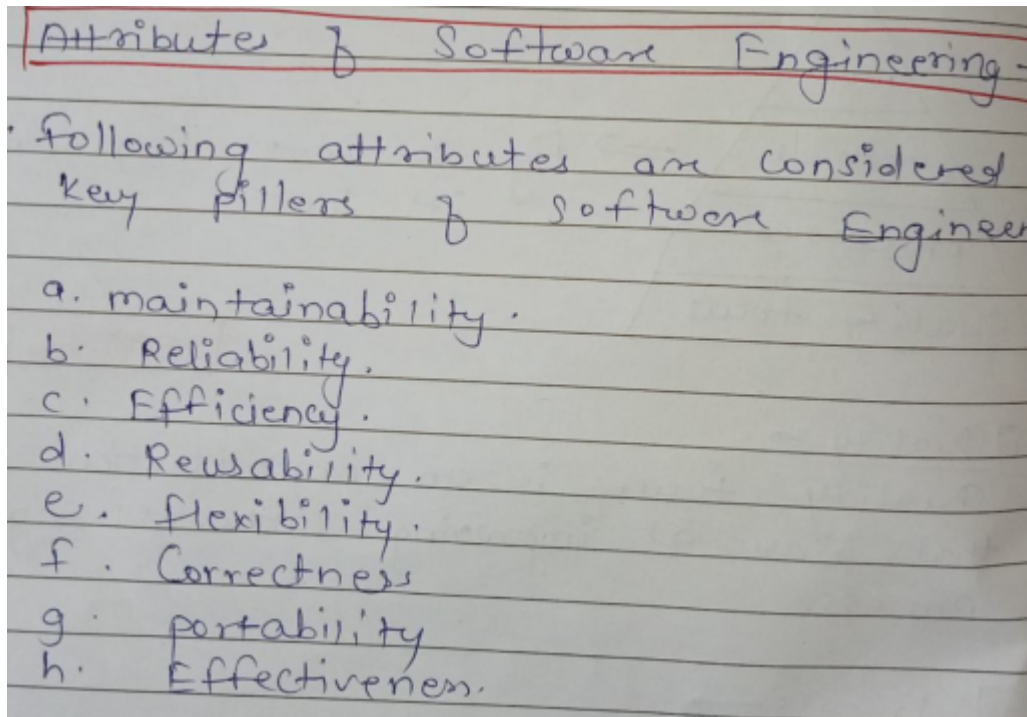 Attributes of Software Engineering -
Following attributes are considered
key pillers of software Engineer
a. maintainability.
b. Reliability.
c. Efficiency.
d. Reusability.
e. flexibility.
f. Correctness
g. portability
h. Effectiveness.